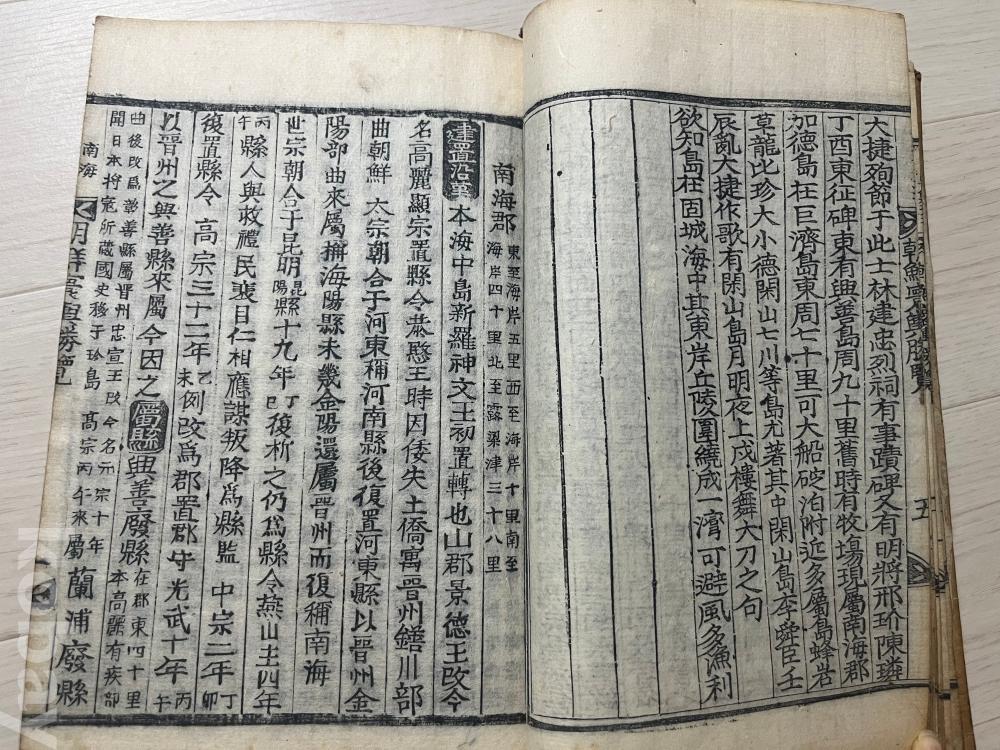 大捷殉節于此士林建忠烈祠有事蹟碑又有明將邢玠陳璘
丁酉東征碑東有興善島周九十里舊時有牧場現屬南海郡
加德島在巨濟島東周七十里可大船碇泊附近多屬島蜂岩
草龍比珍大小德閑山七川等島尤著其中閑山島李舜臣壬
辰亂大捷作歌有閑山島月明夜上戍樓舞大刀之句
欲知島在固城海中其東岸丘陵圍繞成一濟可避風多漁利
五
南海郡 東至海岸五里西至海岸十里南至海岸四十里北至露梁津三十八里
建置沿革 本海中島新羅神文王初置轉也山郡景德王改今
名高麗顯宗置縣令恭愍王時因倭失土僑寓晋州鐥川部
曲朝鮮 太宗朝合于河東稱河南縣後復置河東縣以晋州金
陽部曲來屬搠海陽縣未幾金陽還屬晋州而復稱南海
世宗朝合于昆明昆陽縣十九年丁巳復析之仍爲縣令燕山主四年
丙午縣人與敀禮民裵目仁相應謀叛降爲縣監 中宗二年丁卯
復置縣令 高宗三十二年乙未例改爲郡置郡守光武十年丙午
以晋州之興善縣來屬今因之 屬縣 興善廢縣在郡東四十里本高麗有疾部
曲後改爲彰善縣屬晋州忠宣王改今名元宗十年聞日本將寇所藏國史移于珍島高宗丙午來屬 蘭浦廢縣
南海
kolpay